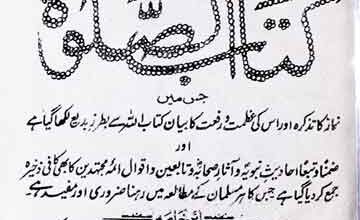 کتاب الصلوٰۃ
جس میں
نماز کا تذکرہ اور اس کی عظمت و رفعت کا بیان کتاب اللہ سے بطرز بدیع لکھا گیا ہے
اور
ضمناً و تبعاً احادیث نبویہ و آثار صحابہ و تابعین و اقوال ائمہ مجتہدین کا بھی کافی ذخیرہ
جمع کر دیا گیا ہے جس کا ہر مسلمان کے مطالعہ میں رہنا ضروری اور مفید ہے۔